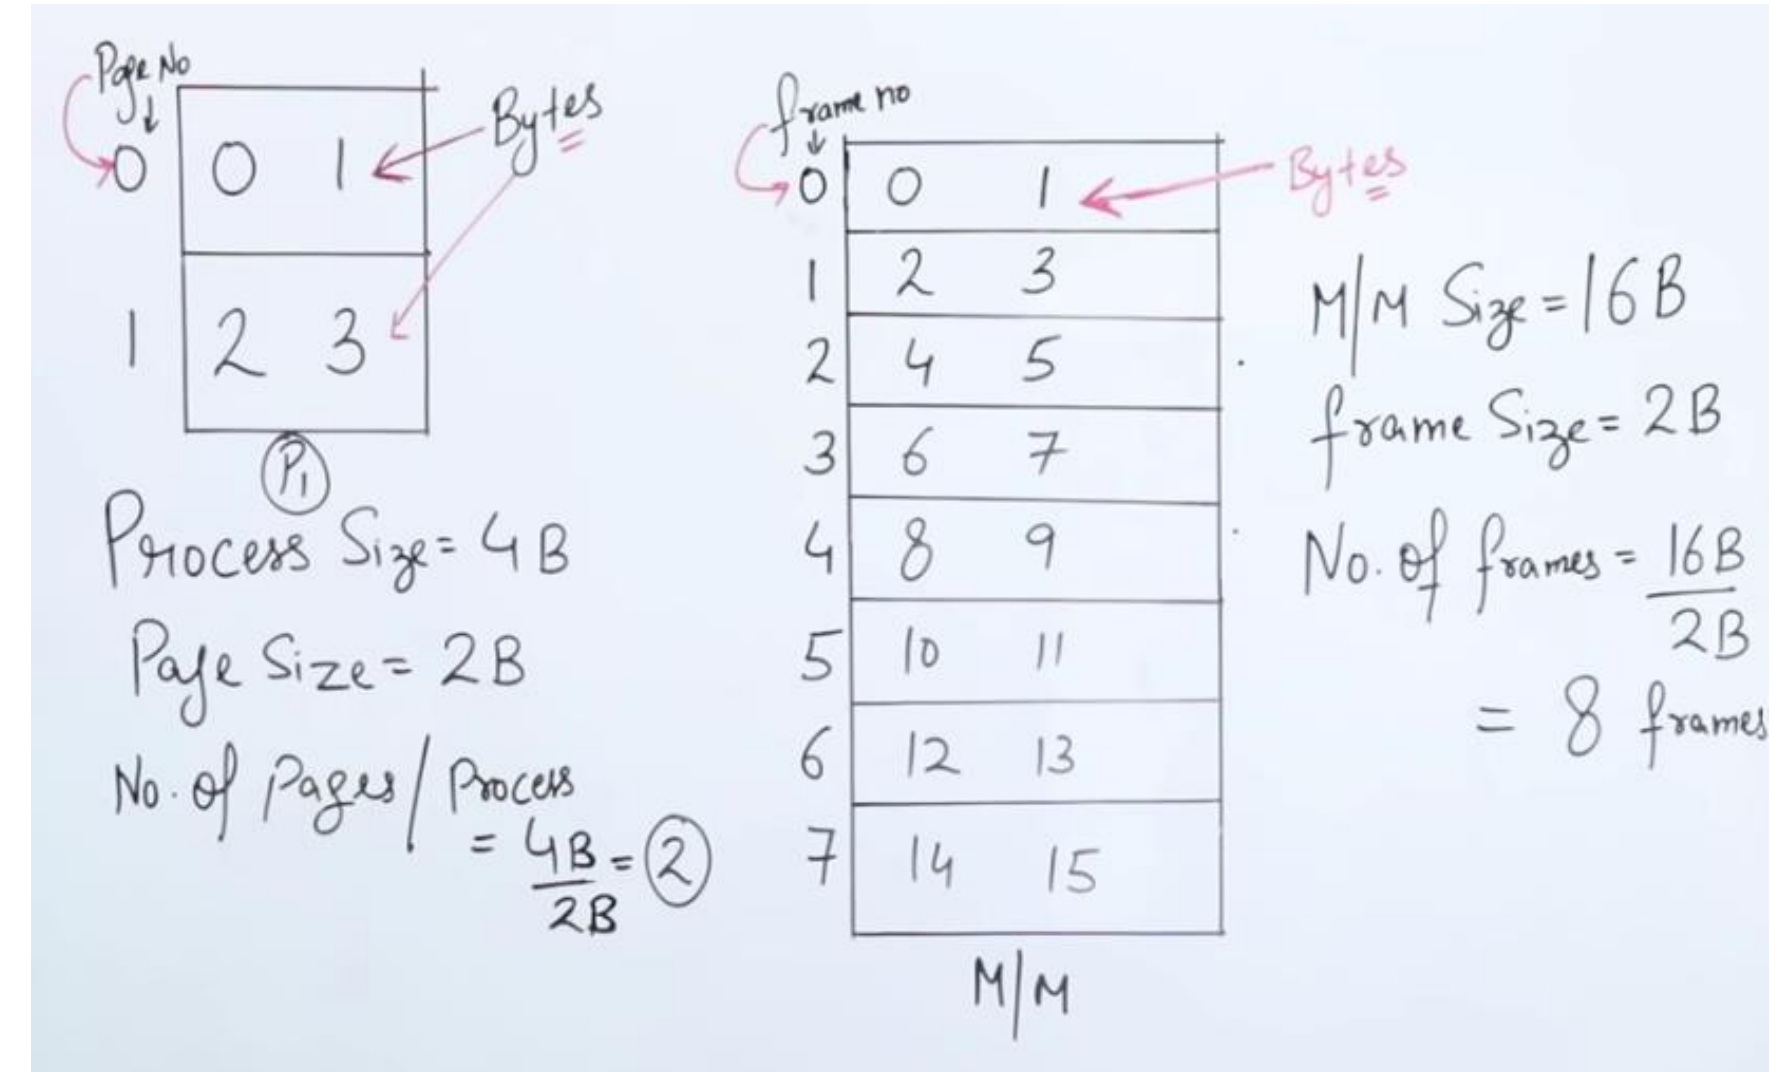 Page No
0 0 1
Bytes
1 2 3
P1
Process Size = 4B
Page Size = 2B
No. of Pages / Process
= 4B/2B = 2
frame no
0 0 1
Bytes
1 2 3
2 4 5
3 6 7
4 8 9
5 10 11
6 12 13
7 14 15
M/M
M/M Size = 16B
frame Size = 2B
No. of frames = 16B/2B
= 8 frames